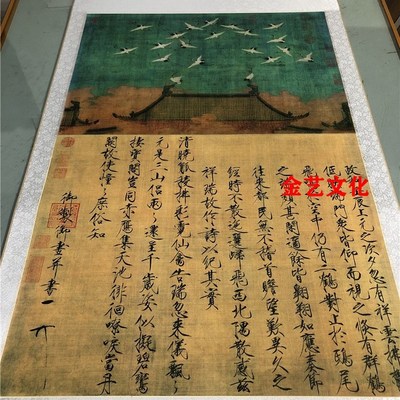 政和壬辰上元之次夕忽有祥雲拂鬱
低映端門眾皆仰而視之倏有群鶴
飛鳴於空中仍有二鶴對止於鴟尾
之端頗甚閒適餘皆翱翔如應奏節
往來都民無不稽首瞻望歎異久之
經時不散迤邐歸飛西北隅散感茲
祥瑞故作詩以紀其實
清曉觚稜拂彩霓仙禽告瑞忽來儀飄〻
元是三山侶兩〻還呈千歲姿似擬碧鸞
棲寶閣豈同赤鴈集天池徘徊嘹唳當丹
闕故使憧〻庶俗知
御製御畫并書
金艺文化